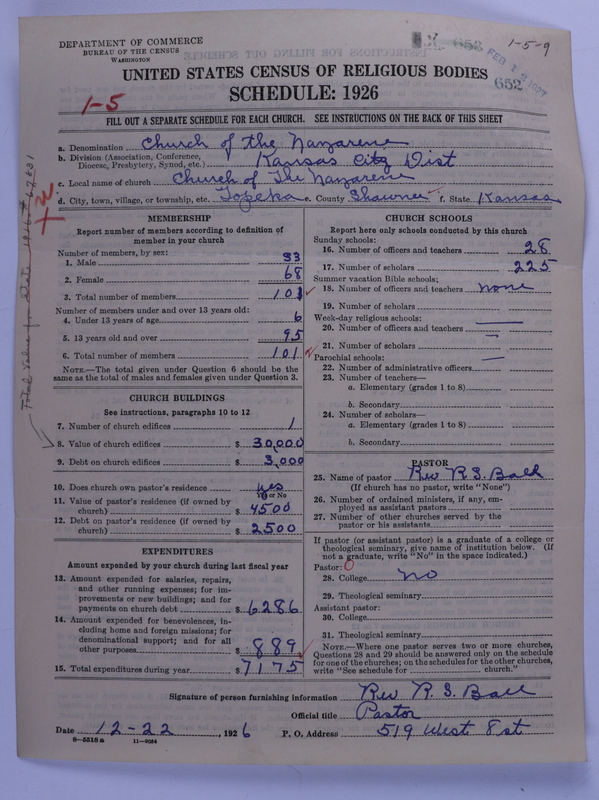 DEPARTMENT OF COMMERCE
BUREAU OF THE CENSUS
WASHINGTON
IX. 653
1-5-9
FEB 12 1927
652
UNITED STATES CENSUS OF RELIGIOUS BODIES
SCHEDULE: 1926
1-5
FILL OUT A SEPARATE SCHEDULE FOR EACH CHURCH. SEE INSTRUCTIONS ON THE BACK OF THIS SHEET
a. Denomination Church of the Nazarene
b. Division (Association, Conference, Diocese, Presbytery, Synod, etc.) Kansas City Dist
c. Local name of church Church of The Nazarene
d. City, town, village, or township, etc. Topeka e. County Shawnee f. State Kansas
MEMBERSHIP
Report number of members according to definition of
member in your church
Number of members, by sex:
1. Male 33
2. Female 68
3. Total number of members 101
Number of members under and over 13 years old:
4. Under 13 years of age 6
5. 13 years old and over 95
6. Total number of members 101
NOTE.—The total given under Question 6 should be the
same as the total of males and females given under Question 3.
CHURCH BUILDINGS
See instructions, paragraphs 10 to 12
7. Number of church edifices 1
8. Value of church edifices $ 30,000
9. Debt on church edifices $ 3,000
10. Does church own pastor's residence yes
Yes or No
11. Value of pastor's residence (if owned by
church) $ 4500
12. Debt on pastor's residence (if owned by
church) $ 2500
EXPENDITURES
Amount expended by your church during last fiscal year
13. Amount expended for salaries, repairs,
and other running expenses; for im-
provements or new buildings; and for
payments on church debt $ 6286
14. Amount expended for benevolences, in-
cluding home and foreign missions; for
denominational support; and for all
other purposes $ 889
15. Total expenditures during year $ 7175
CHURCH SCHOOLS
Report here only schools conducted by this church
Sunday schools:
16. Number of officers and teachers 28
17. Number of scholars 225
Summer vacation Bible schools:
18. Number of officers and teachers none
19. Number of scholars
Week-day religious schools:
20. Number of officers and teachers
21. Number of scholars
Parochial schools:
22. Number of administrative officers
23. Number of teachers—
a. Elementary (grades 1 to 8)
b. Secondary
24. Number of scholars—
a. Elementary (grades 1 to 8)
b. Secondary
PASTOR
25. Name of pastor Rev R.S. Ball
(If church has no pastor, write "None")
26. Number of ordained ministers, if any, em-
ployed as assistant pastors
27. Number of other churches served by the
pastor or his assistants
If pastor (or assistant pastor) is a graduate of a college or
theological seminary, give name of institution below. (If
not a graduate, write "No" in the space indicated.)
Pastor: 0
28. College No
29. Theological seminary
Assistant pastor:
30. College
31. Theological seminary
NOTE.—Where one pastor serves two or more churches,
Questions 28 and 29 should be answered only on the schedule
for one of the churches; on the schedules for the other churches,
write "See schedule for church."
Signature of person furnishing information Rev R. S. Ball
Official title Pastor
Date 12-22, 1926 P. O. Address 519 West 8 st
8-5318a 11-9084